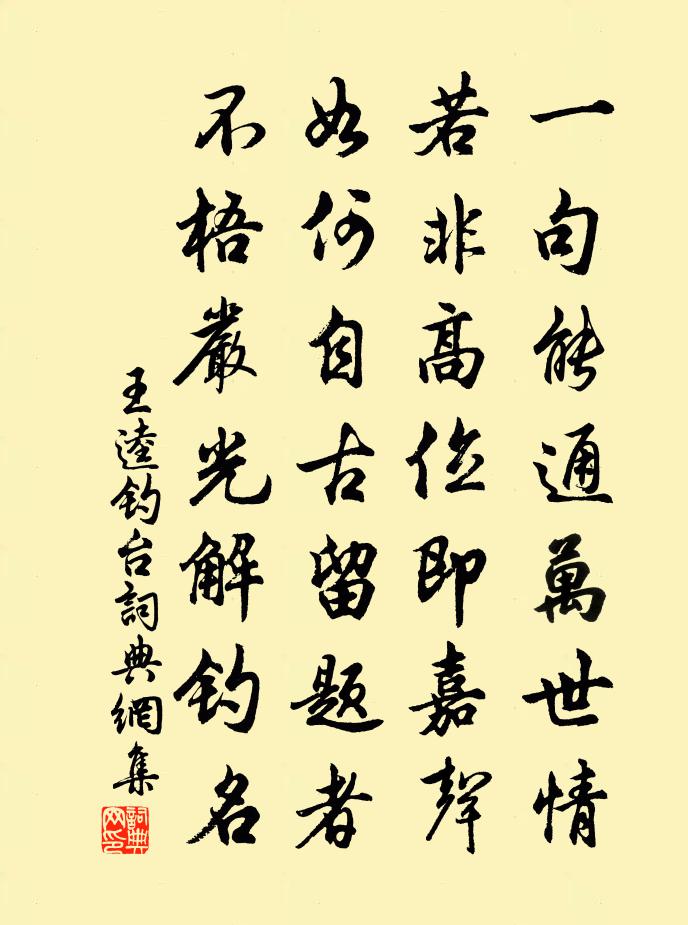 一句能通萬世情
若非高位即嘉聲
如何自古留題者
不悟嚴光解釣名
王逵釣台詞典網集
詞典
网印